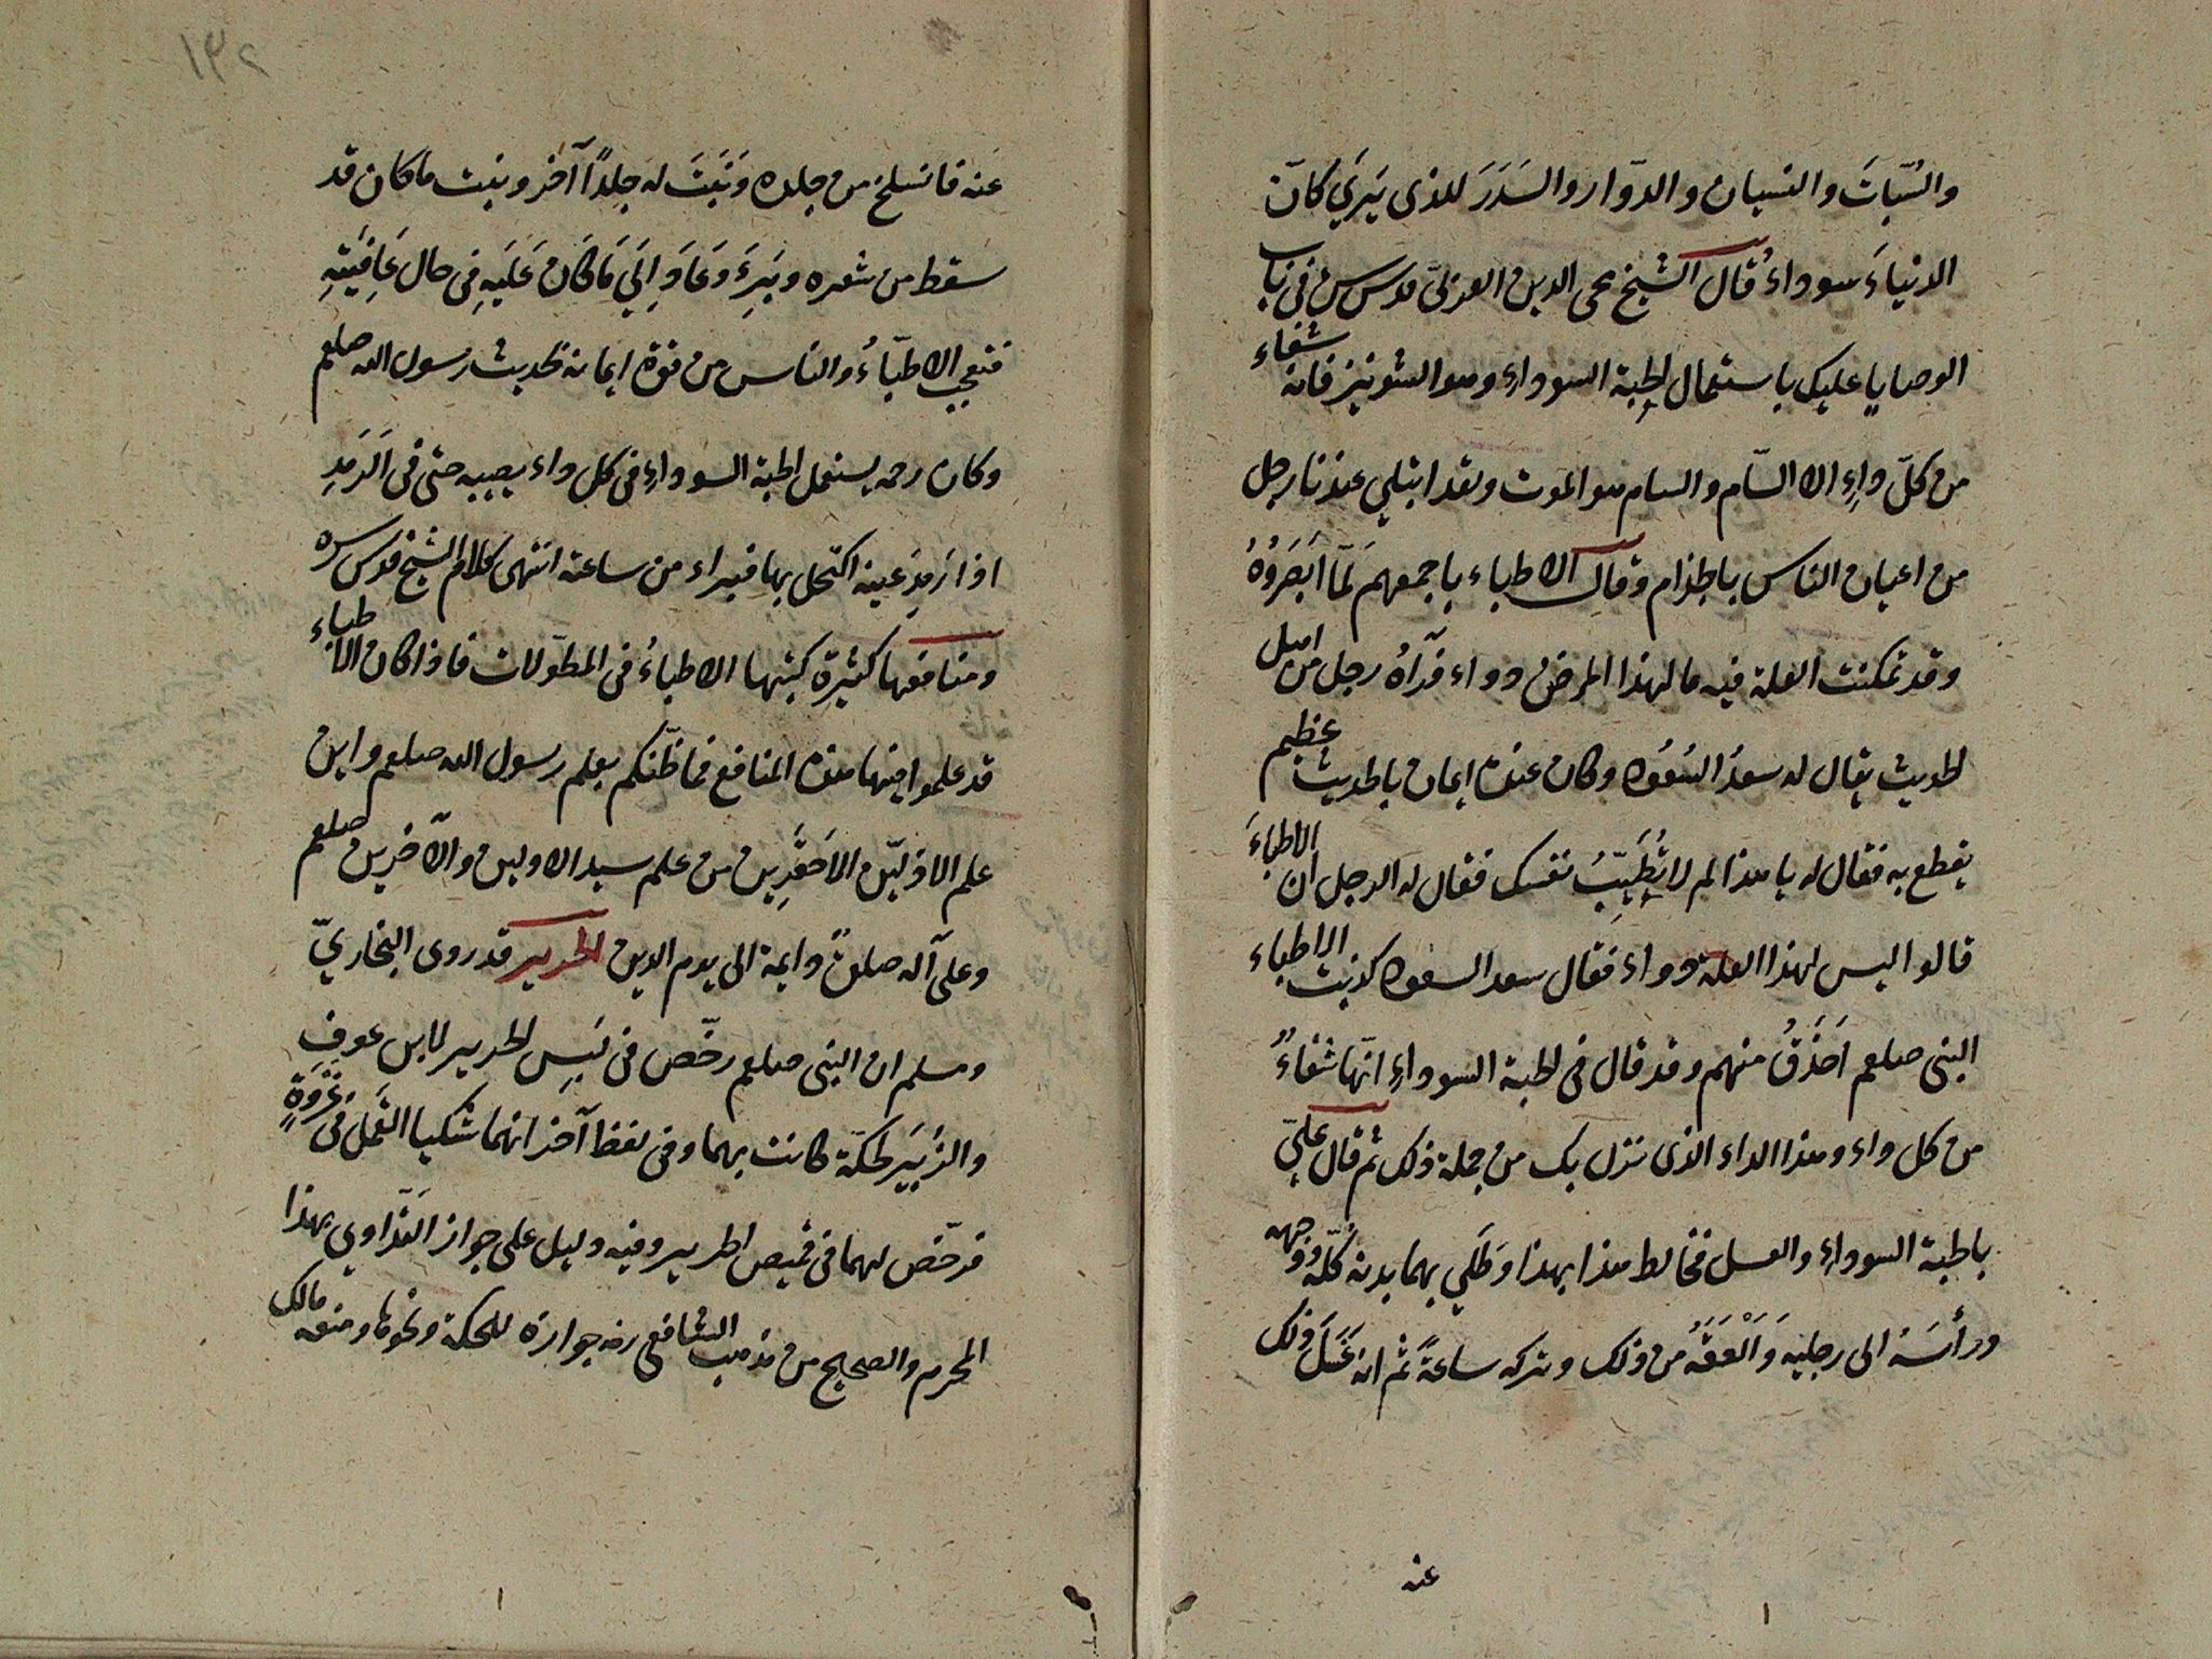 والسّباتَ والنسيان والدّوار والسَدَرَ للذى يَرَي كانّ
الدنياءَ سوداءُ قال الشيخ محى الدين العربىّ قدس سره فى باب
الوصايا عليك باستعمال الحبة السوداءِ وهو الشونيز فانه شفاء
من كلّ داءٍ الا السّام والسام هو الموت ولقد ابتلي عندنا رجل
من اعيان الناس بالجذام وقال الاطباء باجمعهم لَمّا اَبصَرَوُهُ
وقد تمكنت العلة فيه ما لهذا المرض دواء فرآهُ رجل من اهل
الحديث يقال له سعدُ السُعُود وكان عنده ايمان بالحديث عظيم
يقطع به فقال له يا هذا لم لا تُطَبِّبُ نفسك فقال له الرجل ان الاطباءَ
قالوا ليس لهذا العلة دواء فقال سعد السعود كذبت الاطباء
النبى صلعم اَحَذَقُ منهم وقد قال فى الحبة السوداءِ انّها شفاءٌ
من كل داء وهذا الداء الذى نزل بك من جملة ذلك ثم قال علَيّ
بالحبة السوداءِ والعسل فخالط هذا بهذا وطَلَي بهما بدنه كلّه ووجهه
ورأسَهُ الى رجليه وَاَلْعَقَهُ من ذلك وتركه ساعةً ثم انه غَسَلَ ذلك
عنه
١٣٢
عَنه فانسلخ من جلده وَنَبَتَ له جِلدًا آخر ونبت ما كان قد
سقط من شعره وبَرِءَ وَعَادَ اِلَي مَا كَان عَلَيهِ فى حال عَافِيَتِهِ
فتعجب الاطبّاءُ والناس من قوة ايمانه بحديث رسول الله صلعم
وكان رحمه يستعمل الحبة السوداءِ فى كل داء يصيبه حتى فى الرَمَدِ
اذا رَمِدَ عينه اكتحل بها فيبراء من ساعته انتهى كلام الشيخ قدس سره
ومنافعها كثيرة كتبتها الاطباءُ فى المطوّلات فاذا كان الاطباء
قد علموا فيها هذه المنافع فما ظنّكم بعلم رسول الله صلعم واين
علم الاذلّين الاَحقَرِين من علم سيد الاولين والآخرين صلعم
وعلى آله صلوةً دايمة الى يوم الدين الحرير قد روى البخاريّ
ومسلم ان النبى صلعم رخّص فى لبس الحرير لابن عوفٍ
والزُبَيَر لحكّة كانت بهما وفى لفظ آخر انهما شكيا القَمْلَ فى غَزوَةٍ
فرخّص لهما فى قميص الحرير وفيه دليل على جواز التَدَاوي بهذا
المحرم والصحيح من مذهب الشافعى رضه جوازه للحكة ونحوها ومنعه مالك